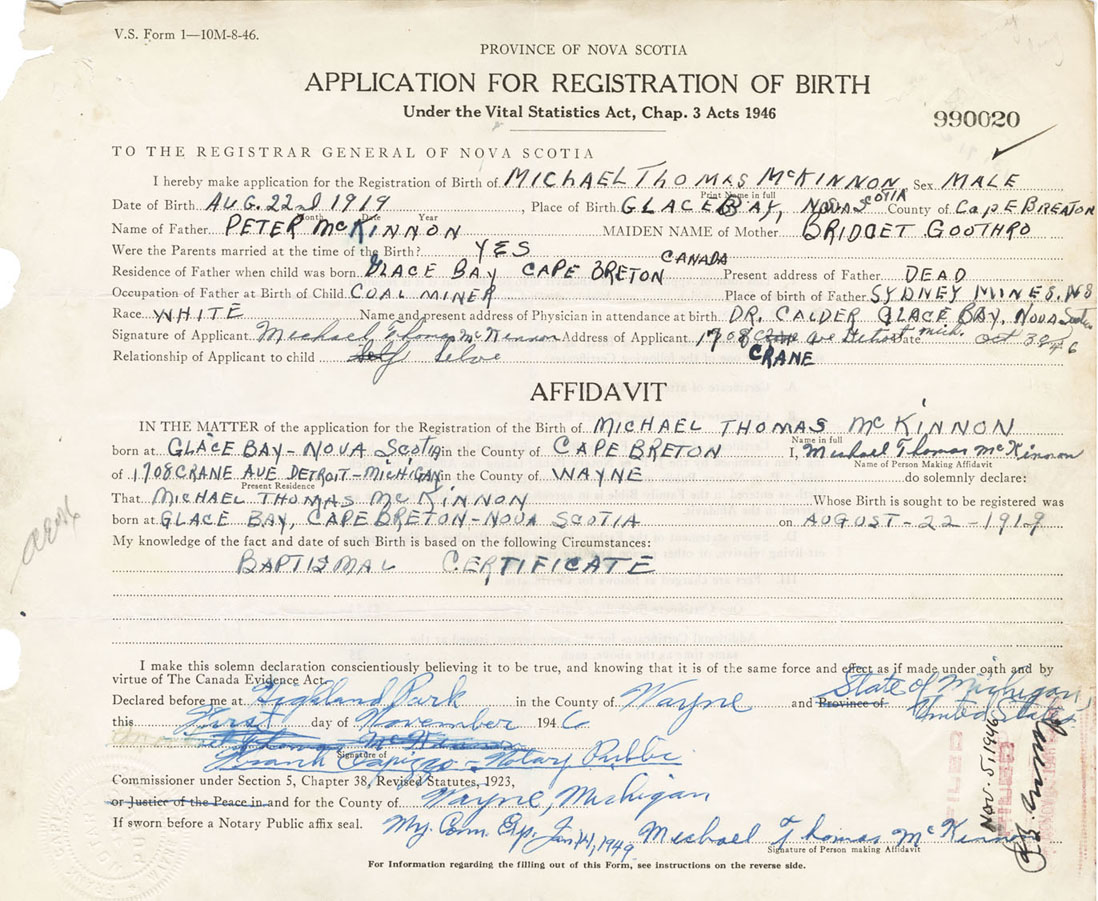 V.S. Form 1—10M-8-46.
PROVINCE OF NOVA SCOTIA
APPLICATION FOR REGISTRATION OF BIRTH
Under the Vital Statistics Act, Chap. 3 Acts 1946
990020
TO THE REGISTRAR GENERAL OF NOVA SCOTIA
I hereby make application for the Registration of Birth of MICHAEL THOMAS McKINNON Sex MALE
Print Name in full
Date of Birth AUG. 22nd 1919, Place of Birth GLACE BAY, NOVA SCOTIA County of CAPE BREATON
Month Date Year
Name of Father PETER McKINNON MAIDEN NAME of Mother BRIDGET GOOTHRO
Were the Parents married at the time of the Birth? YES
Residence of Father when child was born GLACE BAY CAPE BRETON CANADA Present address of Father DEAD
Occupation of Father at Birth of Child COAL MINER Place of birth of Father SYDNEY MINES. NS
Race WHITE Name and present address of Physician in attendance at birth DR. CALDER GLACE BAY, NOVA Scotia
Signature of Applicant Michael Thomas McKinnon Address of Applicant 1708 Ave Detroit Mich. Date Oct 30 46
CRANE
Relationship of Applicant to child Self Selve
AFFIDAVIT
IN THE MATTER of the application for the Registration of the Birth of MICHAEL THOMAS McKINNON
Name in full
born at GLACE BAY - NOVA SCOTIA in the County of CAPE BRETON I, Michael Thomas McKinnon
Name of Person Making Affidavit
of 1708 CRANE AVE DETROIT-MICHIGAN in the County of WAYNE do solemnly declare:
Present Residence
That MICHAEL THOMAS McKINNON Whose Birth is sought to be registered was
born at GLACE BAY, CAPE BRETON - NOVA SCOTIA on AUGUST-22-1919
My knowledge of the fact and date of such Birth is based on the following Circumstances:
BAPTISMAL CERTIFICATE
I make this solemn declaration conscientiously believing it to be true, and knowing that it is of the same force and effect as if made under oath and by
virtue of The Canada Evidence Act.
Declared before me at Highland Park in the County of Wayne and Province of State of Michigan,
United States
this First day of November 1946
Thomas McKinnon
Frank - Notary Public
Signature of
Commissioner under Section 5, Chapter 38, Revised Statutes, 1923,
or Justice of the Peace in and for the County of Wayne, Michigan
If sworn before a Notary Public affix seal. My Comm. Exp. Jan 14, 1949 Michael Thomas McKinnon
Signature of Person making Affidavit
For Information regarding the filling out of this Form, see instructions on the reverse side.
NOV. 5, 1946
FILED